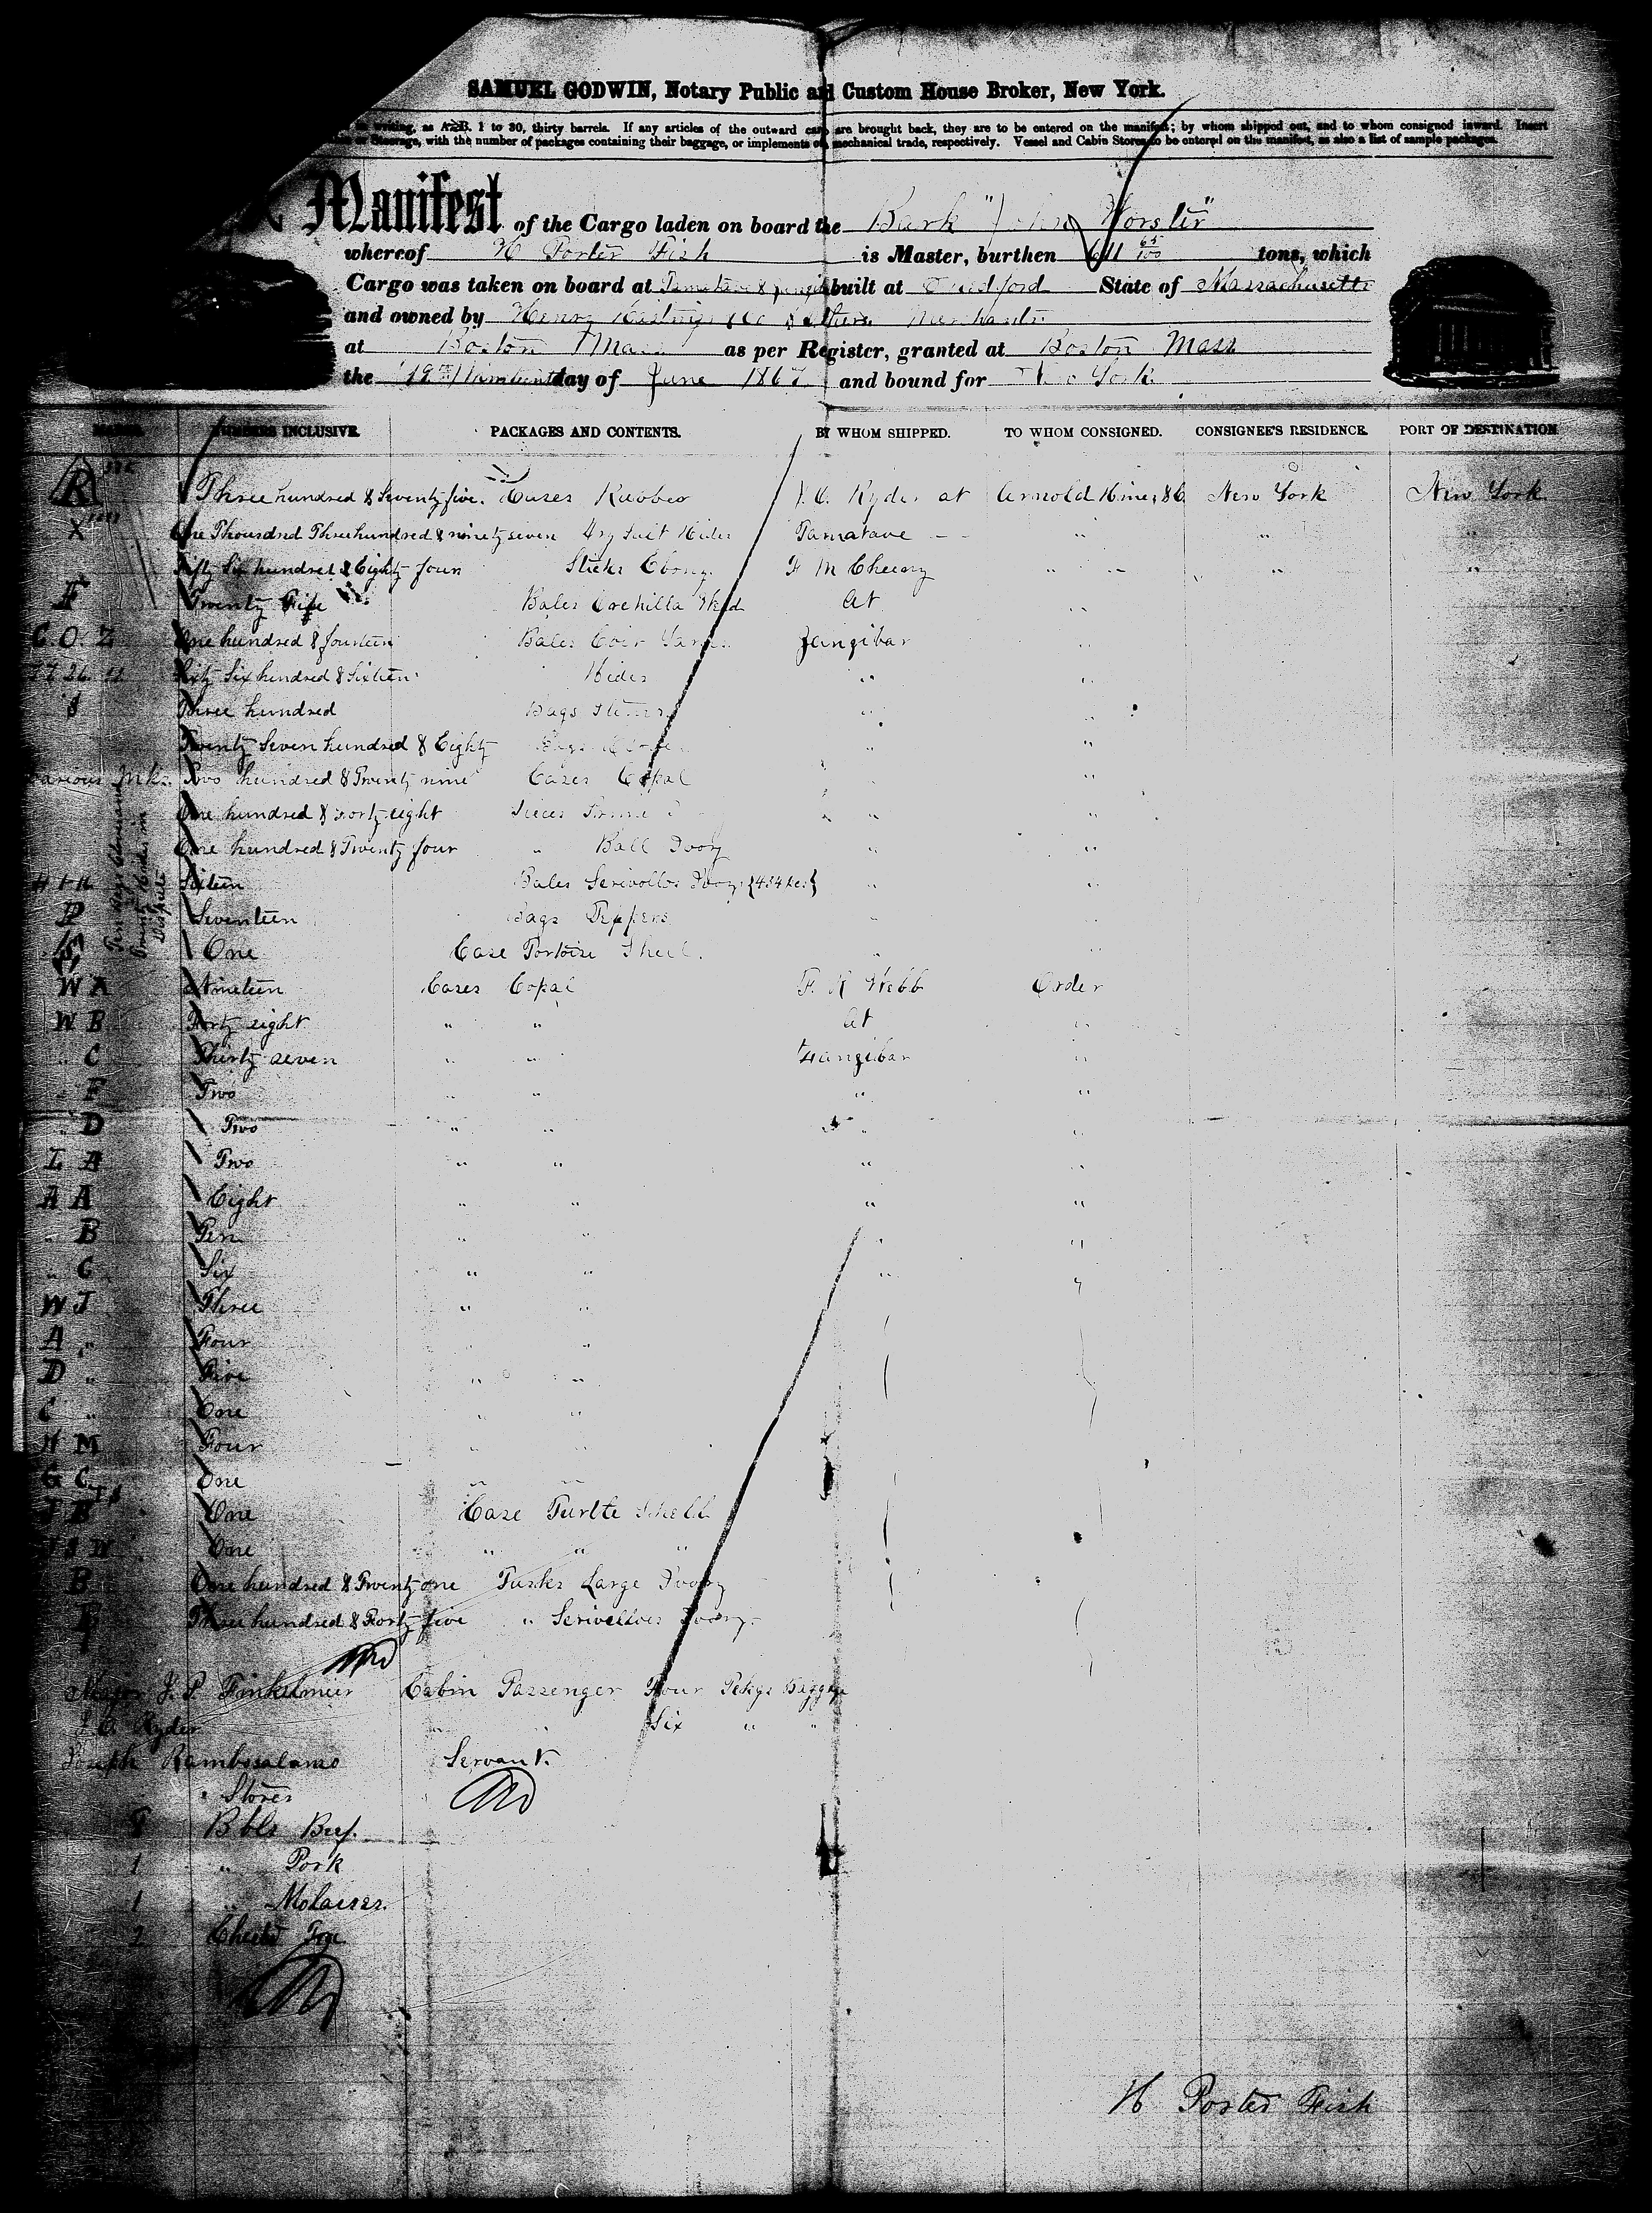 SAMUEL GODWIN, Notary Public and Custom House Broker, New York.
writing, as A. B. 1 to 30, thirty barrels. If any articles of the outward cargo are brought back, they are to be entered on the manifest; by whom shipped out, and to whom consigned inward. Insert
or Steerage, with the number of packages containing their baggage, or implements of mechanical trade, respectively. Vessel and Cabin Stores to be entered on the manifest, as also a list of sample packages.
Manifest of the Cargo laden on board the Bark "John Worster"
whereof H Porter Fish is Master, burthen 611 65/100 tons, which
Cargo was taken on board at Tamatave & built at Medford State of Massachusetts
and owned by Henry Hastings & Co & others Merchants
at Boston Mass as per Register, granted at Boston Mass
the 19th day of June 1867 and bound for New York
MARKS. NUMBERS INCLUSIVE. PACKAGES AND CONTENTS. BY WHOM SHIPPED. TO WHOM CONSIGNED. CONSIGNEE'S RESIDENCE. PORT OF DESTINATION
R Three hundred & Seventy five. Cases Rubber J. O. Ryder at Arnold Hines & Co New York New York
X One Thousand Three hundred & ninety seven Dry Salt Hides Tamatave " " "
Fifty Six hundred & Eighty four Sticks Ebony F M Cheeny " " "
F Twenty Five Bales Orchilla Weed at "
C. O. Z One hundred & fourteen Bales Coir Yarn Zanzibar "
Sixty Six hundred & Sixteen Hides " "
Three hundred Bags " "
Twenty Seven hundred & Eighty Bags " "
Various Mks Two hundred & Twenty nine Cases Copal " "
One hundred & Forty eight Pieces Prime " "
One hundred & Twenty four " Ball Ivory " "
Sixteen Bales Scrivollos Ivory {434 } " "
P Seventeen Bags Peppers " "
One Case Tortoise Shell. " "
W A Nineteen Cases Copal F. R Webb Order
W B Forty eight " " at "
" C Thirty seven " " Zanzibar "
" F Two " " " "
" D Two " " " "
L A Two " " " "
A A Eight " " " "
" B Ten " " " "
" C Six " " " "
W J Three " "
A " Four " "
D " Five " "
C " One " "
H M Four " "
G C One " "
J B One Case Turtle Shell
J S W One " " "
B One hundred & Twenty one Tusks Large Ivory
B Three hundred & Forty five " Scrivelloes Ivory
Major J. P. Finkelmeir Cabin Passenger Four Pckgs Baggage
J. O. Ryder " " Six " "
Joseph Servant.
Stores
8 Bbls Beef.
1 " Pork
1 " Molasses.
2 Chests Tea
H Porter Fish